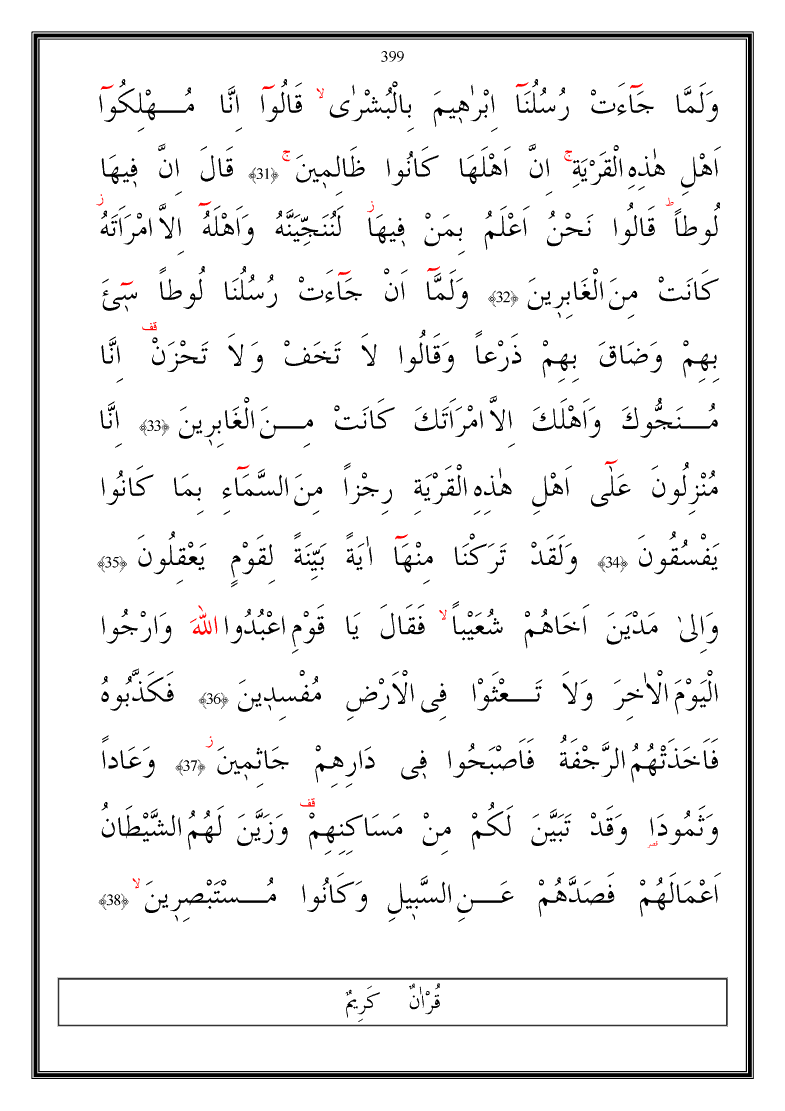 399
وَلَمَّا جَٓاءَتْ رُسُلُنَٓا اِبْرٰه۪يمَ بِالْبُشْرٰى ۙ قَالُٓوا اِنَّا مُـــهْلِكُٓوا
اَهْلِ هٰذِهِ الْقَرْيَةِ ۚ اِنَّ اَهْلَهَا كَانُوا ظَالِم۪ينَ ۚ ﴿31﴾ قَالَ اِنَّ ف۪يهَا
لُوطاً ؕ قَالُوا نَحْنُ اَعْلَمُ بِمَنْ ف۪يهَاؗ لَنُنَجِّيَنَّهُ وَاَهْلَهُٓ اِلاَّ امْرَاَتَهُؗ
كَانَتْ مِنَ الْغَابِر۪ينَ ﴿32﴾ وَلَمَّٓا اَنْ جَٓاءَتْ رُسُلُنَا لُوطاً س۪ٓئَ
بِهِمْ وَضَاقَ بِهِمْ ذَرْعاً وَقَالُوا لاَ تَخَفْ وَ لاَ تَحْزَنْ۠ اِنَّا
مُـــنَجُّوكَ وَاَهْلَكَ اِلاَّ امْرَاَتَكَ كَانَتْ مِـــنَ الْغَابِر۪ينَ ﴿33﴾ اِنَّا
مُنْزِلُونَ عَلٰٓى اَهْلِ هٰذِهِ الْقَرْيَةِ رِجْزاً مِنَ السَّمَٓاءِ بِمَا كَانُوا
يَفْسُقُونَ ﴿34﴾ وَلَقَدْ تَرَكْنَا مِنْهَٓا اٰيَةً بَيِّنَةً لِقَوْمٍ يَعْقِلُونَ ﴿35﴾
وَاِلىٰ مَدْيَنَ اَخَاهُمْ شُعَيْباً ۙ فَقَالَ يَا قَوْمِ اعْبُدُوا اللّٰهَ وَارْجُوا
الْيَوْمَ الْاٰخِرَ وَلاَ تَـــعْثَوْا فِى الْاَرْضِ مُفْسِد۪ينَ ﴿36﴾ فَكَذَّبُوهُ
فَاَخَذَتْهُمُ الرَّجْفَةُ فَاَصْبَحُوا ف۪ى دَارِهِمْ جَاثِم۪ينَؗ ﴿37﴾ وَعَاداً
وَثَمُودَا۬ وَقَدْ تَبَيَّنَ لَكُمْ مِنْ مَسَاكِنِهِمْ۠ وَزَيَّنَ لَهُمُ الشَّيْطَانُ
اَعْمَالَهُمْ فَصَدَّهُمْ عَـــنِ السَّب۪يلِ وَكَانُوا مُـــسْتَبْصِر۪ينَ ۙ ﴿38﴾
قُرْاٰنٌ كَرِيمٌ